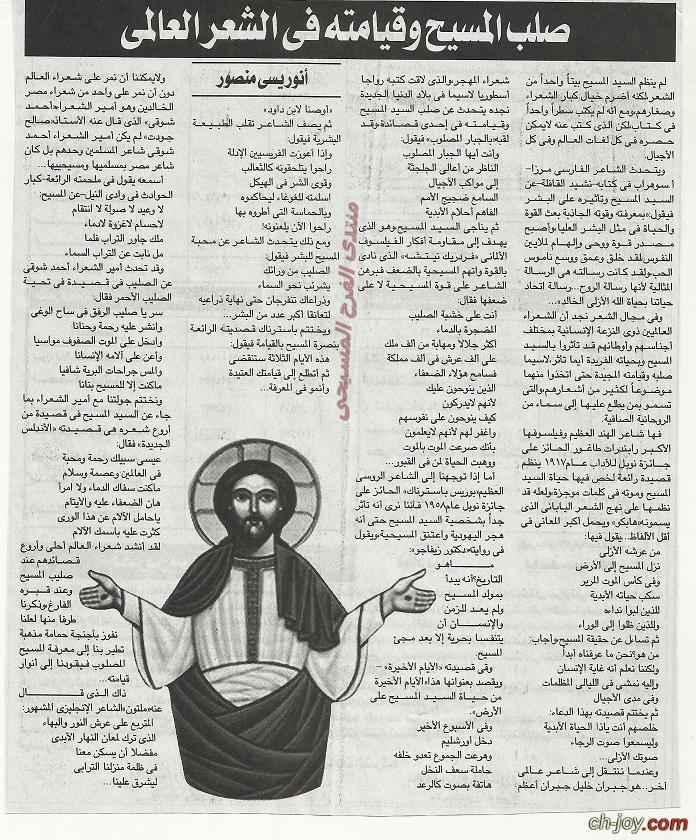 صلب المسيح وقيامته فى الشعر العالمى
أنوريسى منصور
لم ينظم السيد المسيح بيتاً واحداً من
الشعر لكنه أضرم خيال كبار الشعراء
وصغارهم، ومع أنه لم يكتب سطراً واحداً
فى كتاب، لكن الذى كتب عنه لايمكن
حصره فى كل لغات العالم وفى كل
الأجيال.
ويتحدث الشاعر الفارسى مرزا-
أسوهراب فى كتابه «نشيد القافلة» عن
السيد المسيح وتأثيره على البشر
فيقول «بمعرفته وقوته الجاذبة بعث القوة
والحياة فى مثل البشر العليا وأصبح
مصدر قوة ووحى وإلهام لملايين
النفوس، لقد خلق وعمق ووسع ناموس
الحب، ولقد كانت رسالته هى الرسالة
المثالية لأنها رسالة الروح... رسالة اتحاد
حياتنا بحياة الله الأزلى الخالد...
وفى مجال الشعر نجد أن الشعراء
العالميين ذوى النزعة الإنسانية بمختلف
أجناسهم وأوطانهم قد تأثروا بالسيد
المسيح وبحياته الفريدة أيما تأثر، لاسيما
صلبه وقيامته المجيدة حتى اتخذوا منهما
موضوعاً لكثير من أشعارهم، والتى
تسمو بمن يطلع عليها إلى سماء من
الروحانية الصافية.
فها شاعر الهند العظيم وفيلسوفها
الأكبر رابندرات طاغور الحائز على
جائزة نوبل للآداب عام ١٩١٧ ينظم
قصيدة رائعة لخص فيها حياة السيد
المسيح وموته فى كلمات موجزة، ولعله قد
نظمها على نهج الشعر اليابانى الذى
يسمونه «هايكو» ويحمل أكبر المعانى فى
أقل الألفاظ... يقول فيها:
من عرشه الأزلى
نزل المسيح إلى الأرض
وفى كأس الموت المرير
سكب حياته الأبدية
للذين لبوا نداءه
وللذين ظلوا إلى الوراء
ثم تساءل عن حقيقة المسيح، وأجاب:
من هو؟ نحن ما عرفناه أبداً
ولكننا نعلم أنه غاية الإنسان
وإليه نمشى فى الليالى المظلمات
وفى مدى الأجيال
ثم يختتم قصيدته بهذا الدعاء:
خلصهم أنت ياذا الحياة الأبدية
وليسمعوا صوت الرجاء
صوتك الأزلى...
وعندما ننتقل إلى شاعر عالمى
آخر... هو جبران خليل جبران أعظم
شعراء المهجر، والذى لاقت كتبه رواجا
أسطوريا لاسيما فى بلاد الدنيا الجديدة
نجده يتحدث عن صلب السيد المسيح
وقيامته فى إحدى قصائده، وقد
لقبه «بالجبار المصلوب» فيقول:
وأنت أيها الجبار المصلوب
الناظر من أعالى الجلجثة
إلى مواكب الأجيال
السامع ضجيج الأمم
الفاهم أحلام الأبدية
ثم يناجى السيد المسيح وهو الذى
يهدف إلى مقاومة أفكار الفيلسوف
الألمانى «فردريك نيتشه» الذى نادى
بالقوة واتهم المسيحية بالضعف فبرهن
الشاعر على قوة المسيحية لا على
ضعفها فقال:
أنت على خشبة الصليب
المضجرة بالدماء
أكثر جلالا ومهابة من ألف ملك
على ألف عرش فى ألف مملكة
فسامح هؤلاء الضعفاء
الذين ينوحون عليك
لأنهم لايدركون
كيف ينوحون على نفوسهم
واغفر لهم لأنهم لايعلمون
بأنك صرعت الموت بالموت
ووهبت الحياة لمن فى القبور...
أما إذا توجهنا إلى الشاعر الروسى
العظيم «بوريس باسترناك» الحائز على
جائزة نوبل عام ١٩٥٨ فأننا نرى أنه تأثر
جداً بشخصية السيد المسيح حتى أنه
هجر اليهودية واعتنق المسيحية، ويقول
فى روايته «دكتور زيفاجو»:
ما هو
التاريخ؟ أنه يبدأ
بمولد المسيح
ولم يعد للزمن
والإنسان أن
يتنفسا بحرية إلا بعد مجئ
المسيح.
وفى قصيدته «الأيام الأخيرة» -
ويقصد بعنوانها هذا «الأيام الأخيرة
من حياة السيد المسيح على
الأرض».
وفى الأسبوع الأخير
دخل أورشليم
وهرعت الجموع تعدو خلفه
حاملة سعف النخل
هاتفة بصوت كالرعد
«أوصنا لابن داود»
ثم يصف الشاعر تقلب الطبيعة
البشرية فيقول:
وإذا أعوزت الفريسيين الإدلة
راحوا يتلحقونه كالثعالب
وقوى الشر فى الهيكل
أسلمته للغوغاء ليحاكموه
وبالحماسة التى أطروه بها
راحوا الآن يلعنونه!
ومع ذلك يتحدث الشاعر عن محبة
المسيح للبشر فيقول:
الصليب من ورائك
يشرئب نحو السماء
وذراعاك تنفرجان حتى نهاية ذراعيه
لتعانقا أكبر عدد من البشر...
ويختتم باسترناك قصيدته الرائعة
بنصرة المسيح بالقيامة فيقول:
هذه الأيام الثلاثة ستنقضى
ثم أتطلع إلى قيامتك العتيدة
وأنمو فى المعرفة...
ولايمكننا أن نمر على شعراء العالم
دون أن نمر على واحد من شعراء مصر
الخالدين وهو أمير الشعراء «أحمد
شوقى» الذى قال عنه الأستاذ «صالح
جودت» لم يكن أمير الشعراء أحمد
شوقى شاعر المسلمين وحدهم بل كان
شاعر مصر بمسلميها ومسيحييها...
أسمعه يقول فى ملحمته الرائعة «كبار
الحوادث فى وادى النيل» عن المسيح:
لا وعيد لا صولة لا انتقام
لاحسام لاغزوة لادماء
ملك جاور التراب فلما
مل نابت عن التراب السماء
وقد تحدث أمير الشعراء أحمد شوقى
عن الصليب فى قصيدة فى تحية
الصليب الأحمر فقال:
سر يا صليب الرفق فى ساح الوغى
وانشر عليه رحمة وحنانا
وادخل على الموت الصفوف مواسيا
وأعن على آلامه الإنسانا
والمس جراحات البرية شافيا
ماكنت إلا للمسيح بنانا
ونختتم جولتنا مع أمير الشعراء بما
جاء عن السيد المسيح فى قصيدة من
أروع شعره هى قصيدته «الأندلس
الجديدة» فقال:
عيسى سبيلك رحمة ومحبة
فى العالمين وعصمة وسلام
ماكنت سفاك الدماء ولا امرأ
هان الضعفاء عليه والأيتام
ياحامل الآلام عن هذا الورى
كثرت عليه باسمك الآلام
لقد أنشد شعراء العالم أحلى وأروع
قصائدهم عند
صليب المسيح
وعند قبره
الفارغ، وذكرنا
طرفا منها لعلنا
نفوز بأجنحة حمامة مذهبة
تطير بنا إلى معرفة المسيح
المصلوب فيقودنا إلى أنوار
قيامته...
ذاك الذى قال
عنه «ملتون» الشاعر الإنجليزى المشهور:
المتربع على عرش النور والبهاء
الذى ترك لمعان النهار الأبدى
مفضلا أن يسكن معنا
فى ظلمة منزلنا الترابى
ليشرق علينا...
منتدى الفرح المسيحى
ch-joy.com